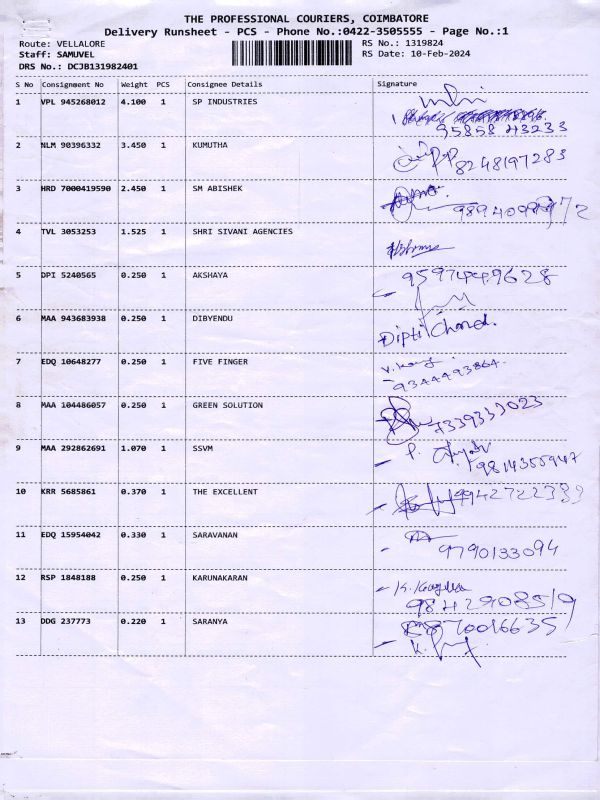 THE PROFESSIONAL COURIERS, COIMBATORE
Delivery Runsheet - PCS - Phone No.:0422-3505555 - Page No.:1
Route: VELLALORE RS No.: 1319824
Staff: SAMUVEL RS Date: 10-Feb-2024
DRS No.: DCJB131982401
S No Consignment No Weight PCS Consignee Details Signature
1 VPL 945268012 4.100 1 SP INDUSTRIES
95858 43233
2 NLM 90396332 3.450 1 KUMUTHA 8248197283
3 HRD 7000419590 2.450 1 SM ABISHEK
4 TVL 3053253 1.525 1 SHRI SIVANI AGENCIES
5 DPI 5240565 0.250 1 AKSHAYA 9597449628
6 MAA 943683938 0.250 1 DIBYENDU
Dipti Chand.
7 EDQ 10648277 0.250 1 FIVE FINGER
9344493864
8 MAA 104486057 0.250 1 GREEN SOLUTION 7339333023
9 MAA 292862691 1.070 1 SSVM
9814355947
10 KRR 5685861 0.370 1 THE EXCELLENT
11 EDQ 15954042 0.330 1 SARAVANAN
9790133094
12 RSP 1848188 0.250 1 KARUNAKARAN
9842908519
13 DDG 237773 0.220 1 SARANYA